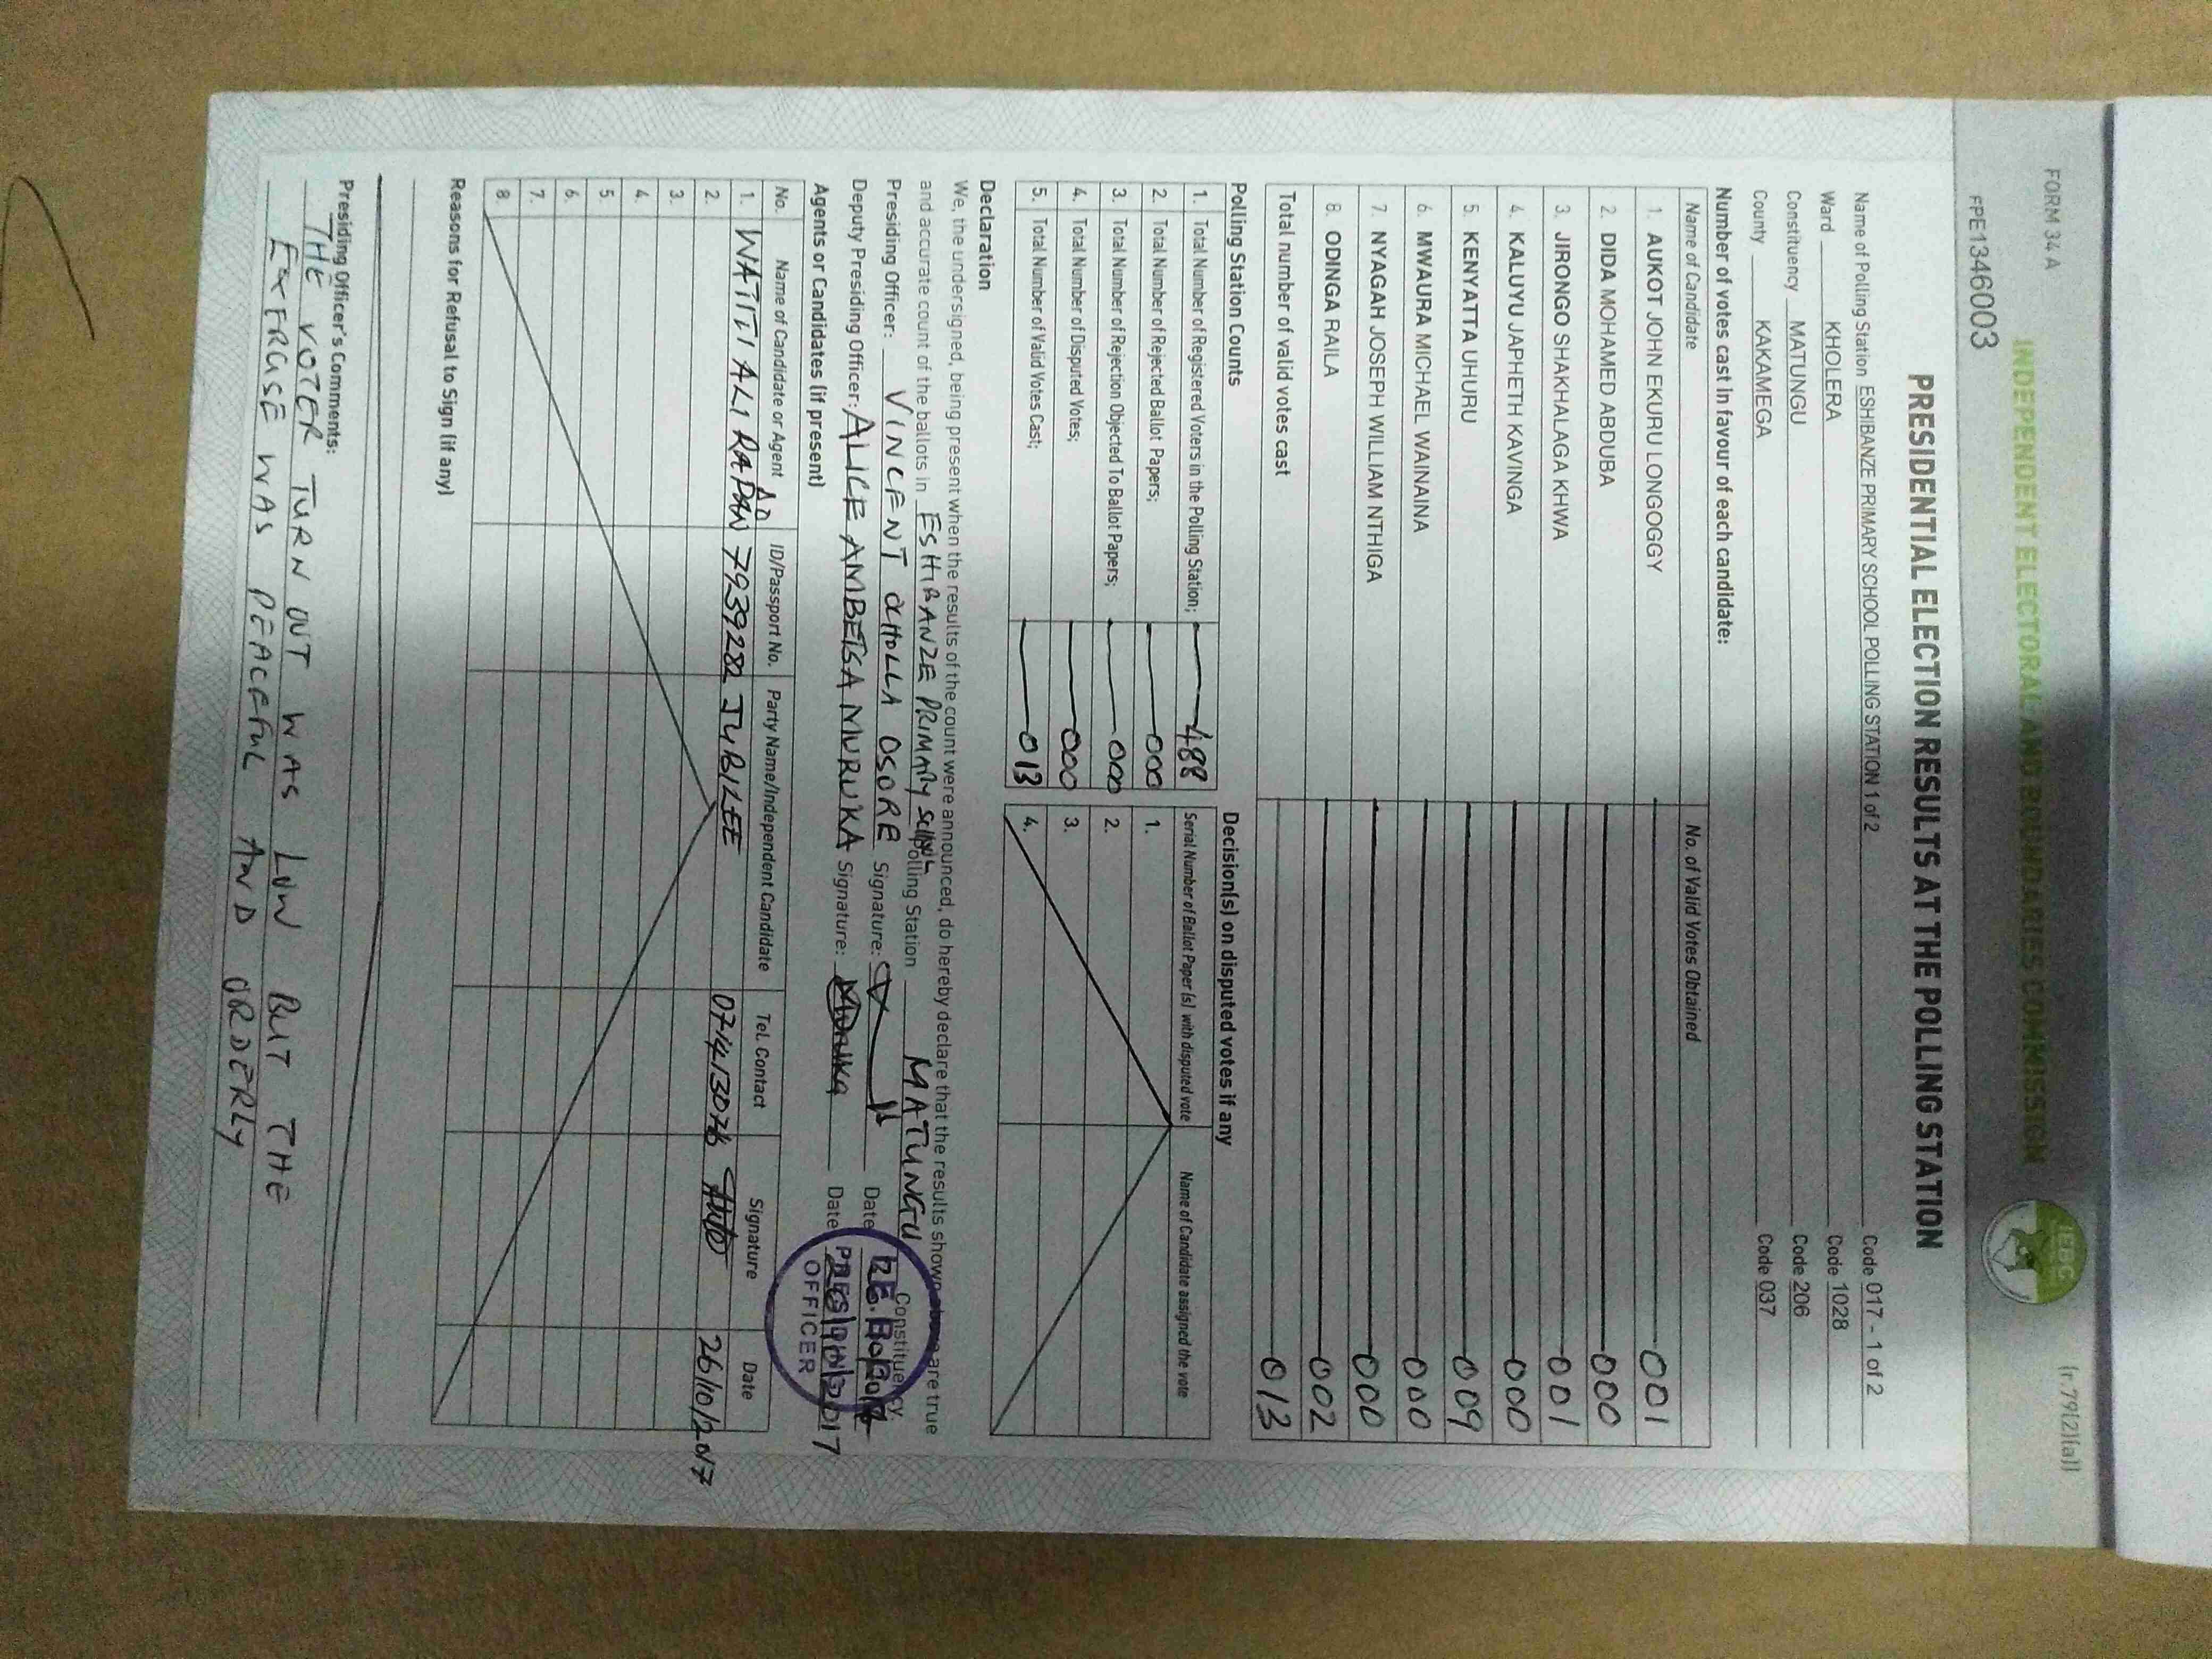 FORM 34 A
(r.79(2)(a))
INDEPENDENT ELECTORAL AND BOUNDARIES COMMISSION
IEBC
PPE1346003
PRESIDENTIAL ELECTION RESULTS AT THE POLLING STATION
Name of Polling Station ESHIBANZE PRIMARY SCHOOL POLLING STATION 1 of 2 Code 017 - 1 of 2
Ward KHOLERA Code 1028
Constituency MATUNGU Code 206
County KAKAMEGA Code 037
Number of votes cast in favour of each candidate:
Name of Candidate No. of Valid Votes Obtained
1. AUKOT JOHN EKURU LONGOGGY 001
2. DIDA MOHAMED ABDUBA 000
3. JIRONGO SHAKHALAGA KHWA 001
4. KALUYU JAPHETH KAVINGA 000
5. KENYATTA UHURU 009
6. MWAURA MICHAEL WAINAINA 000
7. NYAGAH JOSEPH WILLIAM NTHIGA 000
8. ODINGA RAILA 002
Total number of valid votes cast 013
Polling Station Counts
1. Total Number of Registered Voters in the Polling Station; 488
2. Total Number of Rejected Ballot Papers; 000
3. Total Number of Rejection Objected To Ballot Papers; 000
4. Total Number of Disputed Votes; 000
5. Total Number of Valid Votes Cast; 013
Decision(s) on disputed votes if any
Serial Number of Ballot Paper (s) with disputed vote Name of Candidate assigned the vote
1.
2.
3.
4.
Declaration
We, the undersigned, being present when the results of the count were announced, do hereby declare that the results shown above are true
and accurate count of the ballots in ESHIBANZE PRIMARY SCHOOL Polling Station MATUNGU Constituency
Presiding Officer: VINCENT OCHOLLA OSORE Signature: Date
Deputy Presiding Officer: ALICE AMBETSA MURUKA Signature: Muruka Date
PRESIDING
OFFICER
Agents or Candidates (if present)
No. Name of Candidate or Agent ID/Passport No. Party Name/Independent Candidate Tel. Contact Signature Date
1. WATITI ALI RAPAN 7939282 JUBILEE 26/10/2017
2.
3.
4.
5.
6.
7.
8.
Reasons for Refusal to Sign (if any)
Presiding Officer's Comments:
THE VOTER TURN OUT WAS LOW BUT THE
EXERCISE WAS PEACEFUL AND ORDERLY